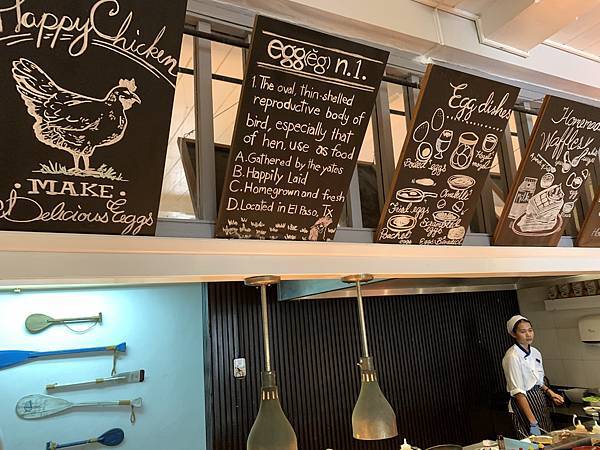 Happy Chicken
MAKE
Delicious Eggs
egg(ĕg) n.1.
1. The oval, thin-shelled
reproductive body of
bird, especially that
of hen, use as food
A. Gathered by the yates
B. Happily Laid
C. Homegrown and fresh
D. Located in El Paso, Tx
Egg dishes
Boiled eggs
Omelette
Fried eggs
Scrambled eggs
Poached eggs
Eggs Benedict
Homemade
Waffles